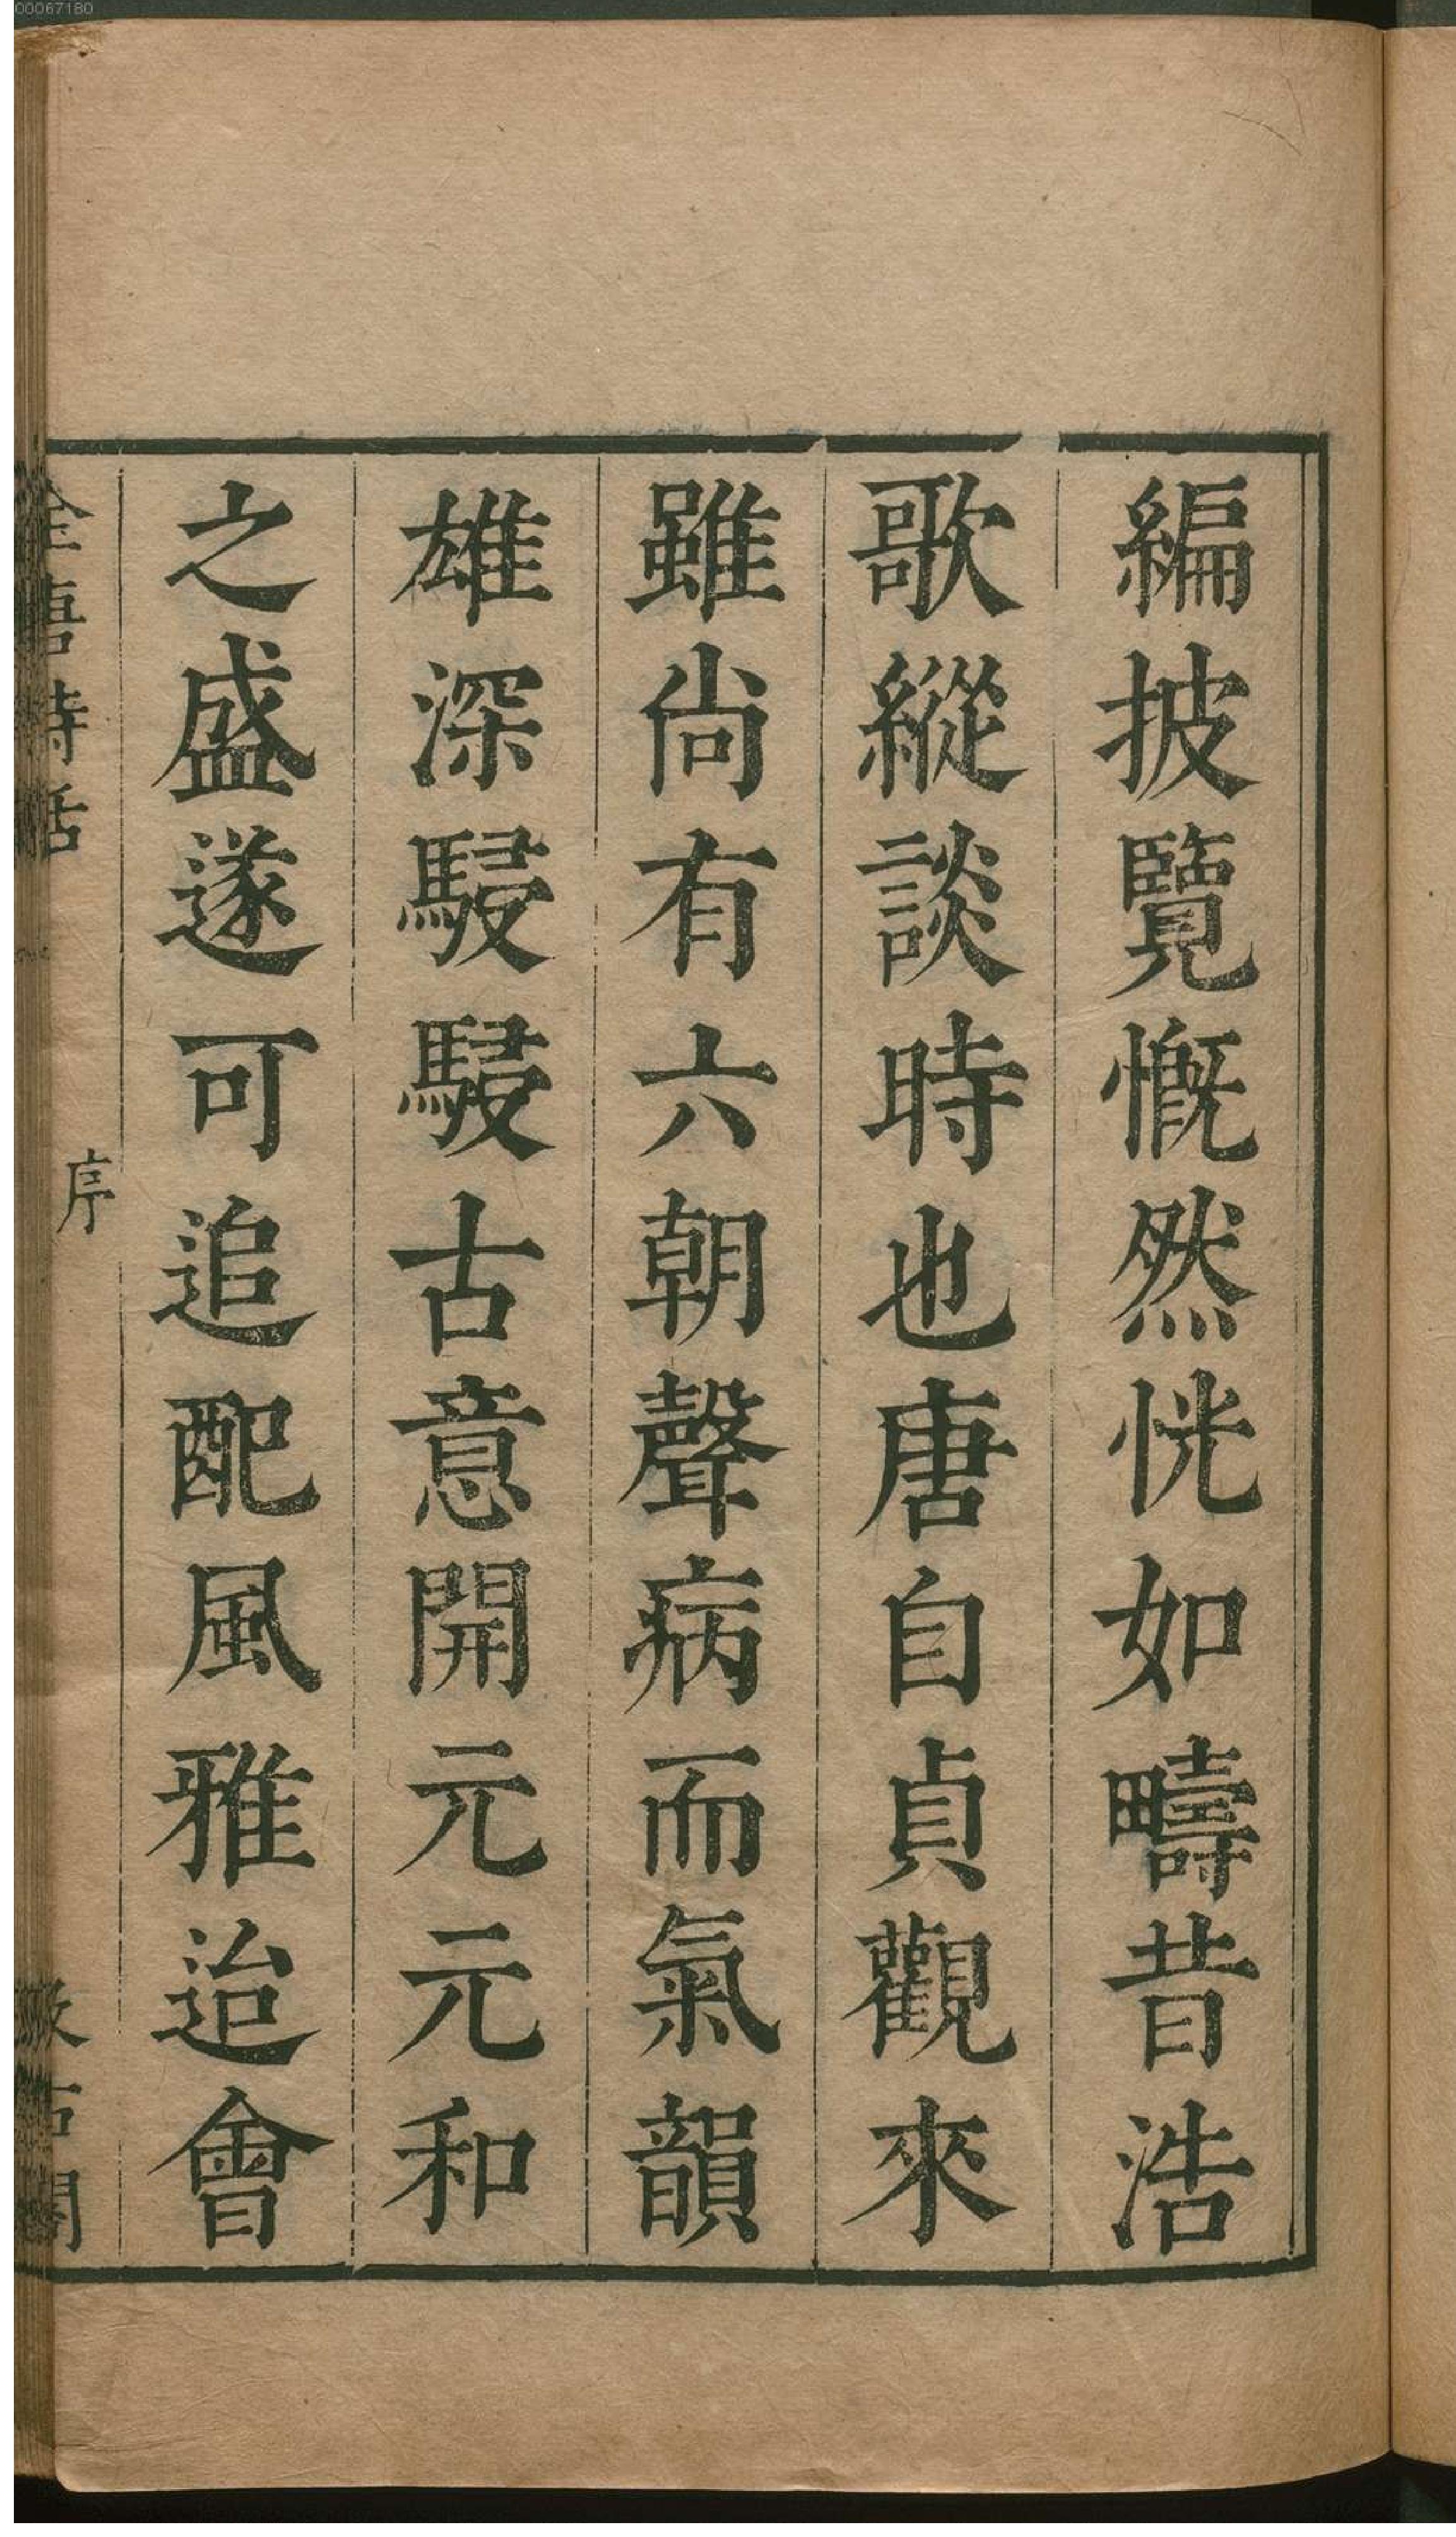 00067180
編披覽慨然恍如疇昔浩
歌縱談時也唐自貞觀來
雖尚有六朝聲病而氣韻
雄深駸駸古意開元元和
之盛遂可追配風雅迨會
全唐詩話
序
汲古閣